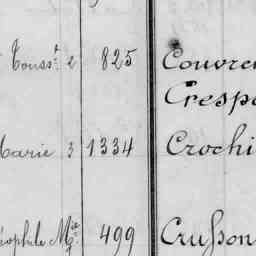 Touss.t 2 825 Couvre
Crespe
Marie 3 1334 Crochi
ophile M.ie 499 Crusson